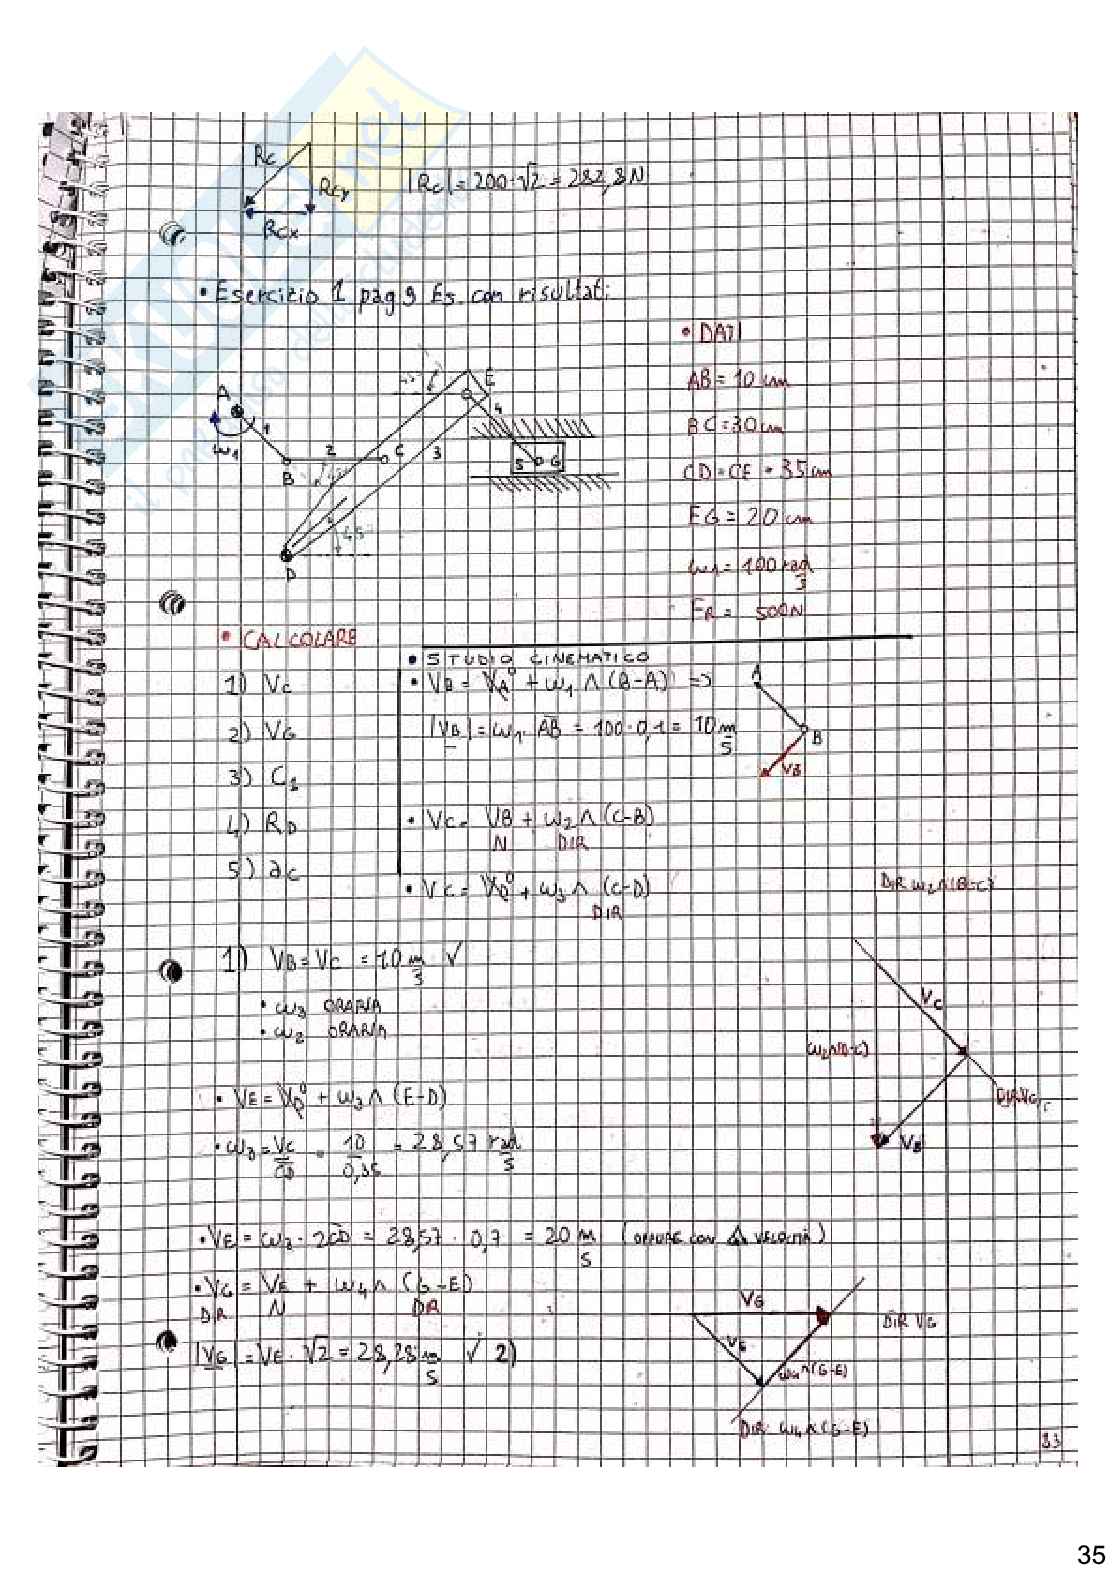 Rc
Rcy
Rcx
|Rc| = 200·√2 = 282,8 N
• Esercizio 1 pag 9 Es. con risultati
• DATI
AB = 10 cm
BC = 30 cm
CD = CE = 35 cm
EG = 20 cm
ω1 = 100 rad/s
FR = 500N
A
1
ω1
B
2
C
3
E
4
5
G
45
D
• CALCOLARE
1) Vc
2) VG
3) C1
4) RD
5) ac
• STUDIO CINEMATICO
• VB = VA⁰ + ω1 ∧ (B-A) =>
|VB| = ω1 · AB = 100·0,1 = 10 m/s
A
B
VB
• Vc = VB + ω2 ∧ (C-B)
N DIR
• Vc = VD⁰ + ω3 ∧ (C-D)
DIR
DIR ω2∧(B-C)
1) VB = Vc = 10 m/s ✓
• ω3 ORARIA
• ω2 ORARIA
Vc
DIR Vc
VB
• VE = VD⁰ + ω3 ∧ (E-D)
• ω3 = Vc/CD = 10/0,35 = 28,57 rad/s
• VE = ω3 · 2CD = 28,57 · 0,7 = 20 m/s (OPPURE CON Δ VELOCITÀ)
• VG = VE + ω4 ∧ (G-E)
DIR N DIR
|VG| = VE · √2 = 28,28 m/s ✓ 2)
VG
DIR VG
VE
ω4∧(G-E)
DIR ω4∧(G-E)
83
35